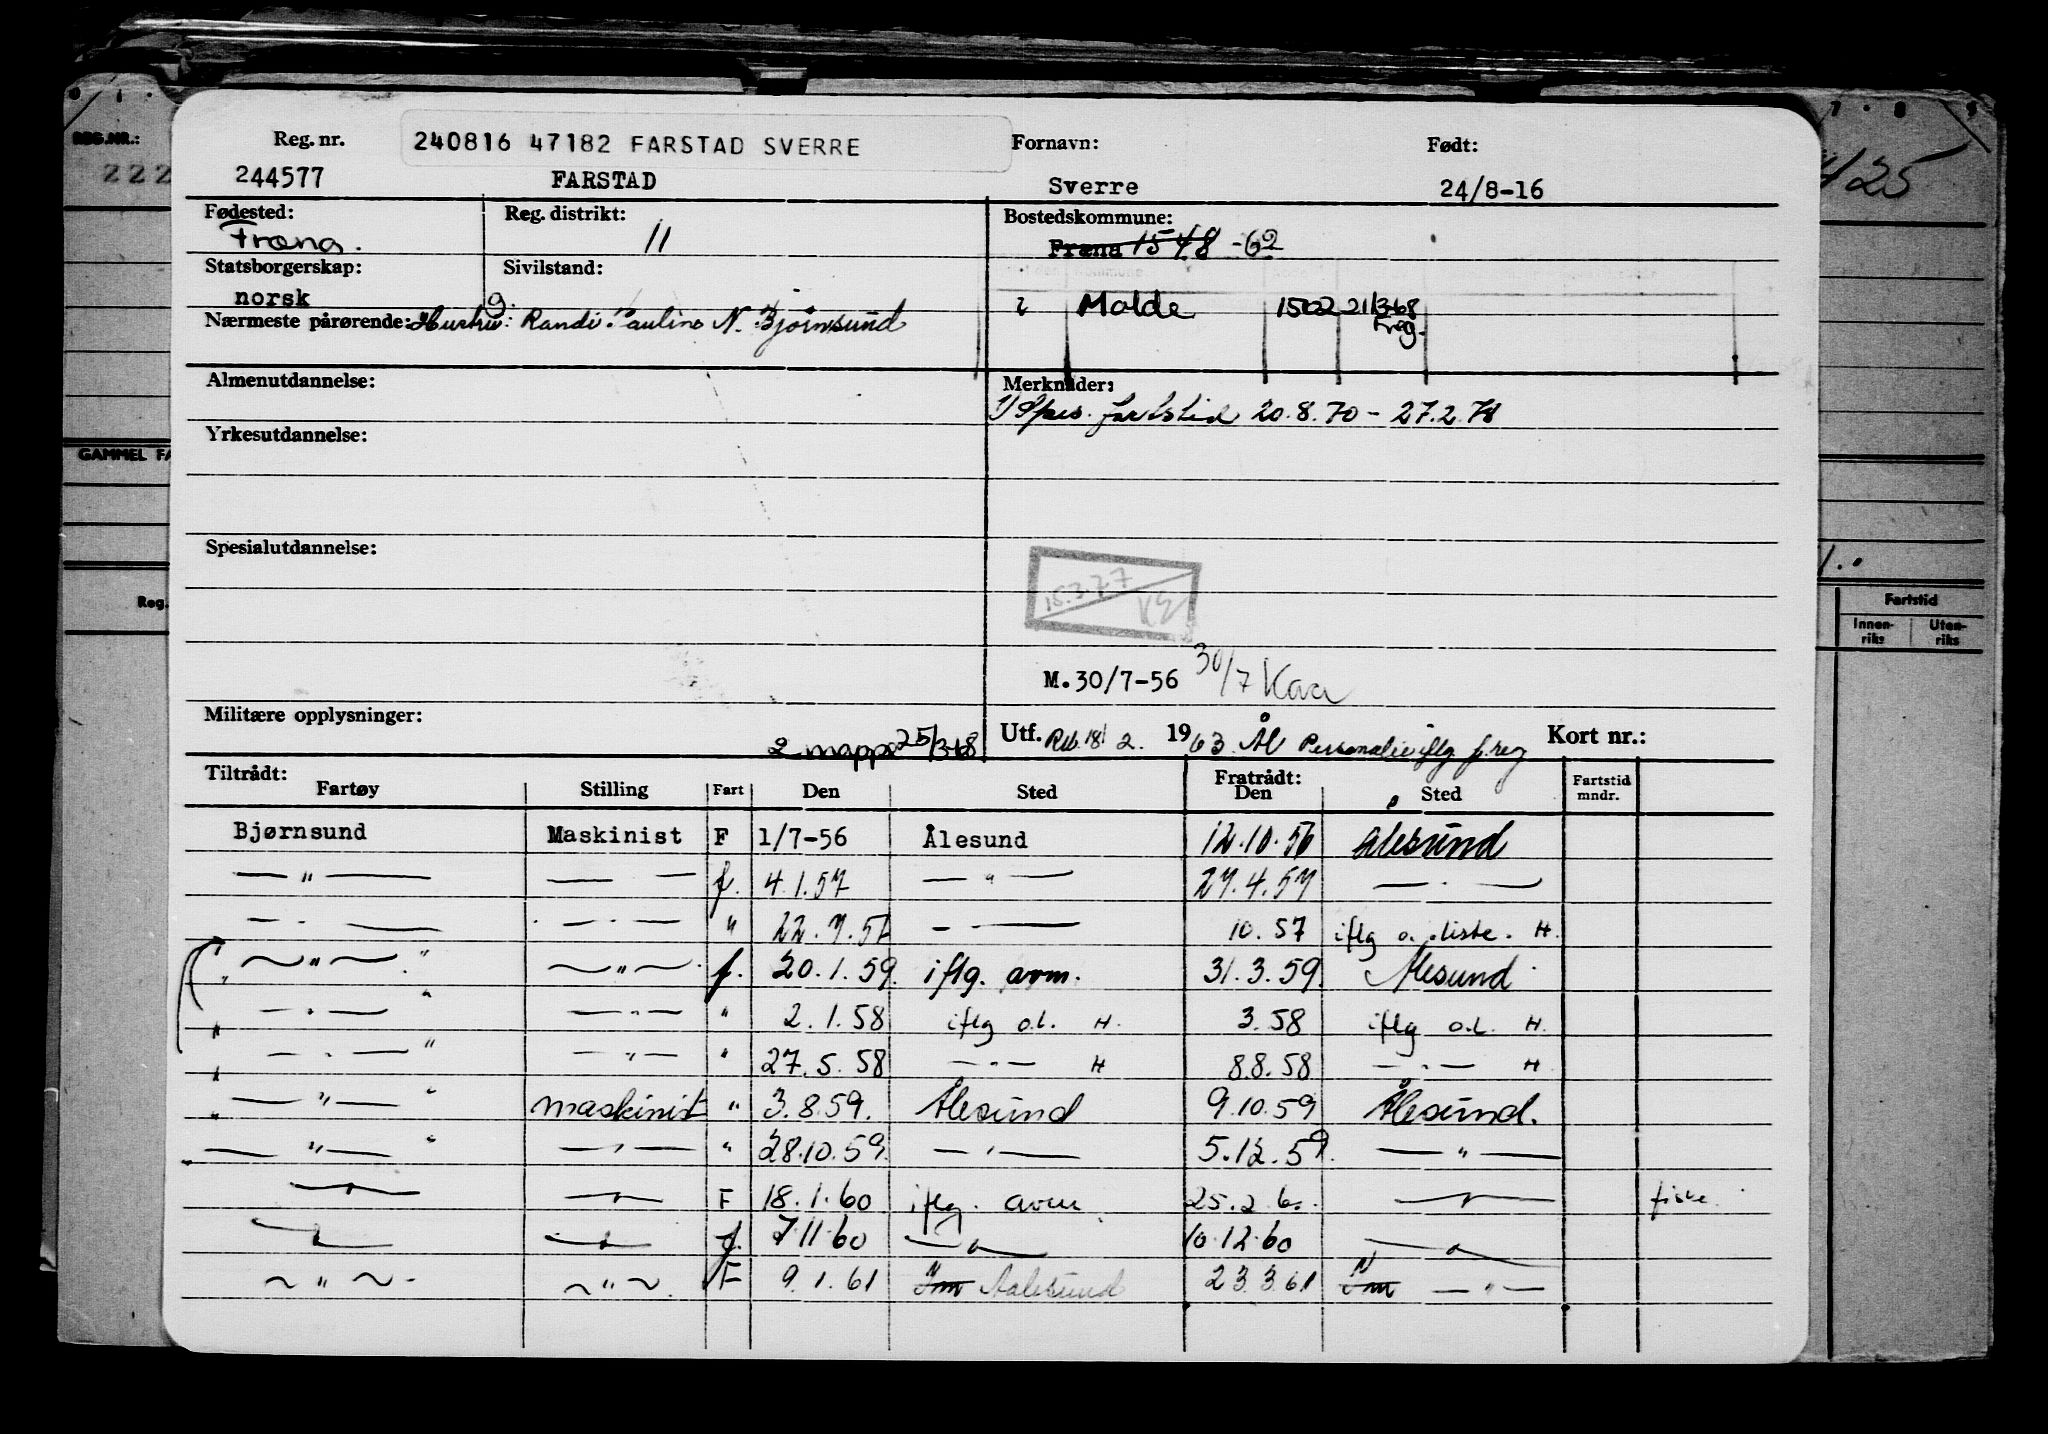 Reg. nr. 240816 47182 FARSTAD SVERRE Fornavn: Født:
REG.NR.:
222 244577 FARSTAD Sverre 24/8-16
Fødested: Reg. distrikt: Bostedskommune:
Fræna. 11 Fræna 1548 -62
Statsborgerskap: Sivilstand:
norsk g. Molde 1502 21/3-68
Freg.
Nærmeste pårørende: Hustru: Randi Pauline N. Bjørnsund
Almenutdannelse: Merknader:
1) Spes. fartstid 20.8.70 - 27.2.78
Yrkesutdannelse:
GAMMEL FA
Spesialutdannelse:
15.3.77
KE
Reg. Fartstid
Innen-riks Uten-riks
M. 30/7-56 30/7 Kaa
Militære opplysninger:
2 mapper 25/3-68 Utf. Reb. 18/2. 1963. Ål Personalie iflg f.reg Kort nr.:
Tiltrådt: Fratrådt:
Fartøy Stilling Fart Den Sted Den Sted Fartstid mndr.
Bjørnsund Maskinist F 1/7-56 Ålesund 12.10.56 Ålesund
— " — — — f. 4.1.57 — " — 27.4.57 — " —
— " — — " — " 22.7.57 — — 10.57 iflg o. liste. H.
" — " — " — " — f. 20.1.59. iflg. avm. 31.3.59. Ålesund
" — " — " — " — " 2.1.58 iflg o.l. H. 3.58 iflg o.l. H.
" — " — " — " — " 27.5.58 — " — H 8.8.58 — " — H
" — " — " maskinist " 3.8.59. Ålesund 9.10.59 Ålesund.
— " — " — " — " 28.10.59. — " — 5.12.59. — " —
— " — — " — F 18.1.60 iflg. avm 25.2.60. — " — fiske.
— " — — " — f. 7.11.60 — " — 10.12.60 — " —
— " — — " — F 9.1.61 Aalesund 23.3.61 — " —